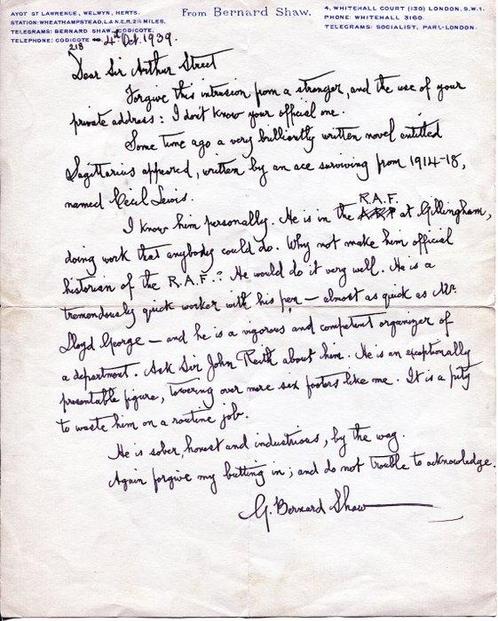 AYOT ST LAWRENCE, WELWYN, HERTS.
STATION: WHEATHAMPSTEAD, L.& N.E.R. 2¼ MILES.
TELEGRAMS: BERNARD SHAW, CODICOTE.
TELEPHONE: CODICOTE 218
From Bernard Shaw.
4, WHITEHALL COURT (130) LONDON, S.W.1.
PHONE: WHITEHALL 3160.
TELEGRAMS: SOCIALIST, PARL-LONDON.
4th Oct. 1939.
Dear Sir Arthur Street
Forgive this intrusion from a stranger, and the use of your
private address: I don't know your official one.
Some time ago a very brilliantly written novel entitled
Sagittarius appeared, written by an ace surviving from 1914-18,
named Cecil Lewis.
I know him personally. He is in the R.A.F. at Gillingham,
doing work that anybody could do. Why not make him official
historian of the R.A.F.? He would do it very well. He is a
tremendously quick worker with his pen — almost as quick as Mr.
Lloyd George — and he is a vigorous and competent organizer of
a department. Ask Sir John Reith about him. He is an exceptionally
presentable figure, towering over mere six footers like me. It is a pity
to waste him on a routine job.
He is sober, honest and industrious, by the way.
Again forgive my butting in; and do not trouble to acknowledge.
G. Bernard Shaw